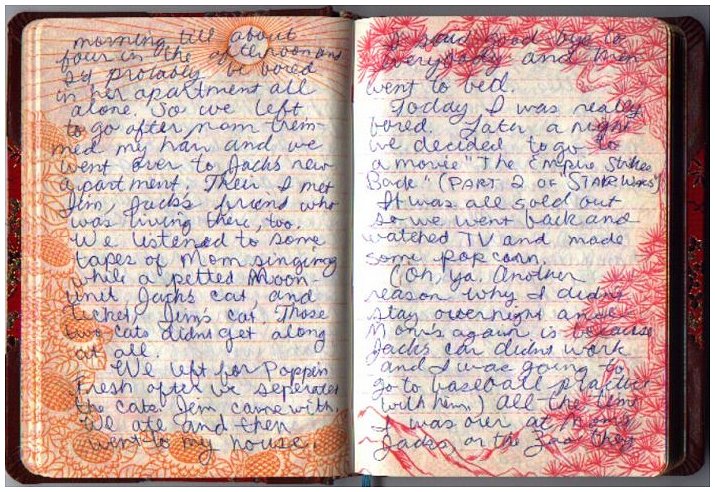 morning till about
four in the afternoon and
I'd probably be bored
in her apartment all
alone. So we left
to go after mom trem-
med my hair and we
went over to Jacks new
apartment. Their I met
Jim, Jacks friend who
was living there, too.
We listened to some
tapes of Mom singing
while a petted Moon-
Unit, Jacks cat, and
Ticket, Jim's cat. Those
two cats didn't get along
at all.
We left for Poppin
Fresh after we seperated
the cats. Jim came with.
We ate and then
went to my house.
I said good bye to
everybody and then
went to bed.
Today I was really
bored. Later a night
we decided to go to
a movie "The Empire Strikes
Back" (PART 2 OF STAR WARS)
It was all sold out
so we went back and
watched TV and made
some pop corn.
(Oh, ya. Another
reason why I didn't
stay overnight at
Mom's again is because
Jacks car didn't work
and I was going to
go to baseball practice
with him.) All the time
I was over at Mom's
Jacks, or the Zoo they